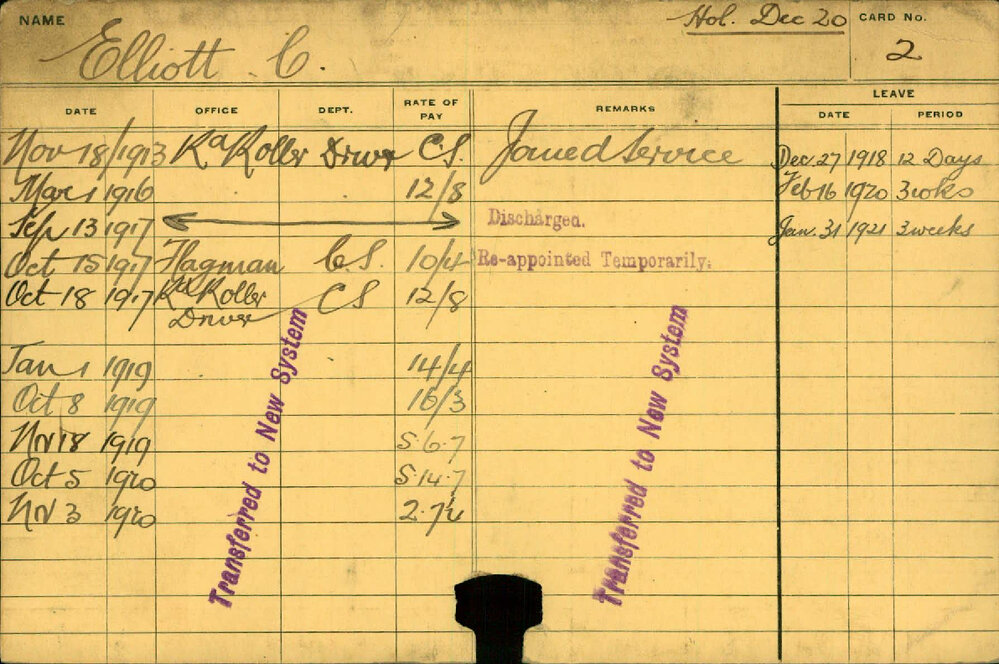 NAME Elliott C. Hol. Dec 20 CARD No. 2
DATE OFFICE DEPT. RATE OF PAY REMARKS LEAVE
DATE PERIOD
Nov 18/1913 Roller Driver C.S. Joined Service Dec. 27 1918 12 Days
Mar 1 1916 12/8 Feb 16 1920 3 wks
Sep 13 1917 Discharged. Jan. 31 1921 3 weeks
Oct 15 1917 Flagman C.S. 10/4 Re-appointed Temporarily.
Oct 18 1917 Roller CS 12/8
Driver
Jan 1 1919 14/4
Oct 8 1919 16/3
Nov 18 1919 5.6.7
Oct 5 1920 5.14.7
Nov 3 1920
Transferred to New System
Transferred to New System